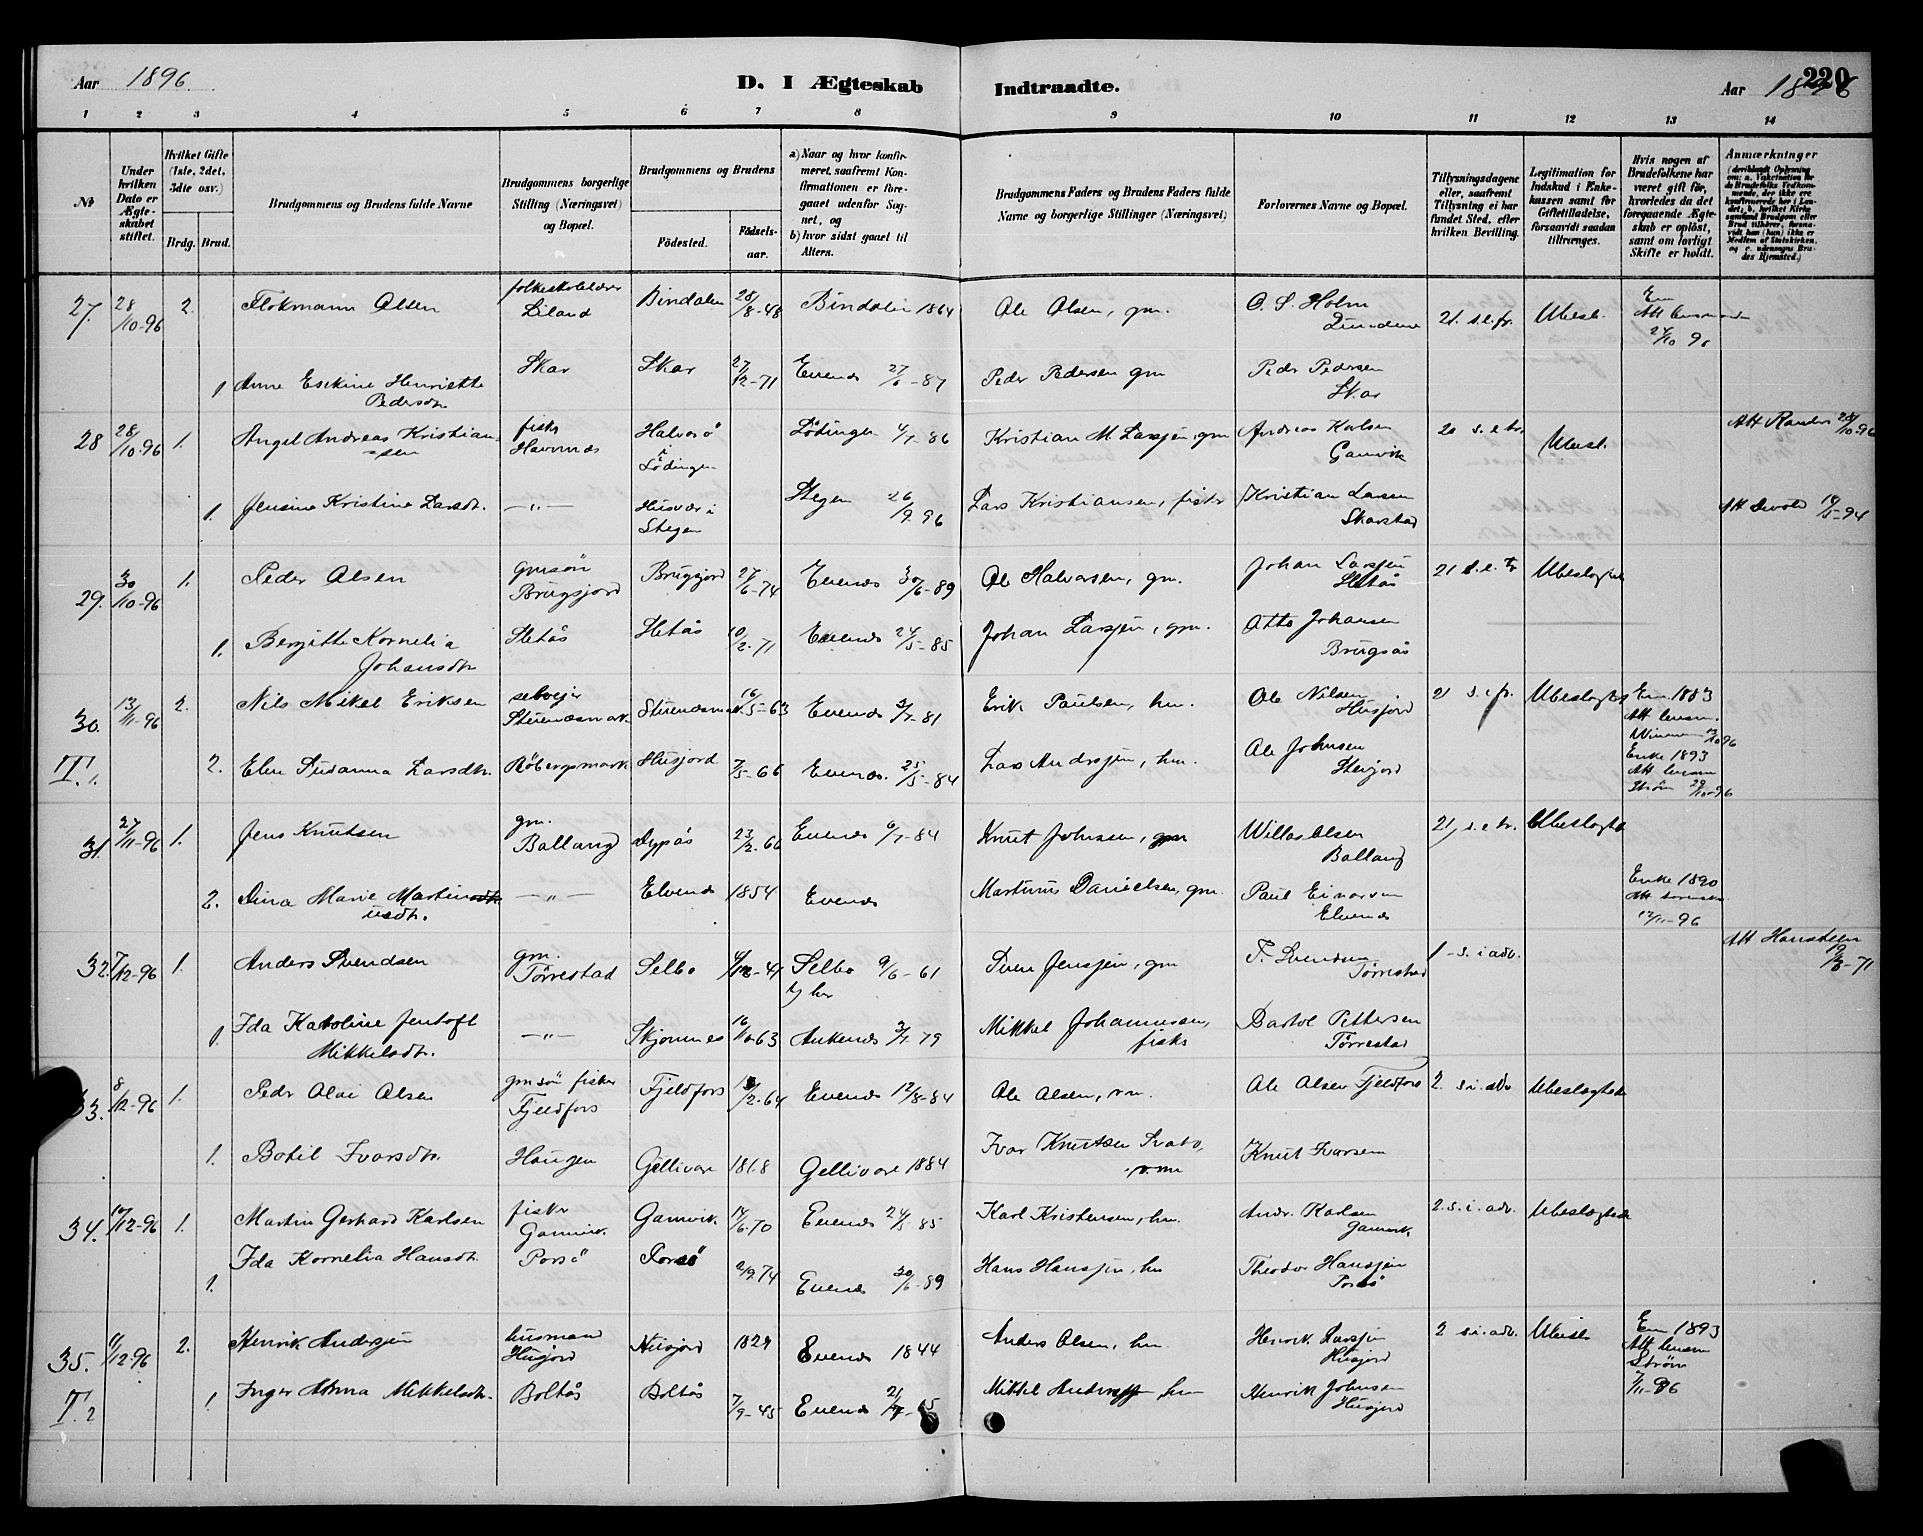 Aar 1896.
D. I Ægteskab Indtraadte.
220
Aar 1896
1 2 3 4 5 6 7 8 9 10 11 12 13 14
№
Under hvilken Dato er Ægteskabet stiftet.
Hvilket Gifte (1ste, 2det, 3die osv.)
Brdg. Brud.
Brudgommens og Brudens fulde Navne
Brudgommens borgerlige Stilling (Næringsvei) og Bopæl.
Brudgommens og Brudens
Födested.
Födselsaar.
a) Naar og hvor konfirmeret, saafremt Konfirmationen er foregaaet udenfor Sognet, og
b) hvor sidst gaaet til Alters.
Brudgommens Faders og Brudens Faders fulde Navne og borgerlige Stillinger (Næringsvei)
Forlovernes Navne og Bopæl.
Tillysningsdagene eller, saafremt Tillysning ei har fundet Sted, efter hvilken Bevilling.
Legitimation for Indskud i Enkekassen samt for Giftetilladelse, forsaavidt saadan tiltrænges.
Hvis nogen af Brudefolkene har været gift før, hvorledes da det foregaaende Ægteskab er oplöst, samt om lovligt Skifte er holdt.
Anmærkninger
27. 28/10-96 2. Olsen Liland Bindalen 28/8-48 Bindalen 1864 Ole Olsen, gm. O. S. Holm 21. s.e.tr. Ubesl.
1 Anne Henriette Pedersdtr. Skar Skar 27/12-71 Evenes 27/6-87 Peder Pedersen gm Peder Pedersen Skar
28 28/10-96 1. Angel Andreas Kristiansen fisker Havnnes Halvarö i Lödingen Lödingen 4/7 86 Kristian M Larssen, gm Andreas Karlsen Gamvik 20 s.e.tr. Ubesl. Att 28/10-96
1. Jensine Kristine Larsdtr. —"— Husvær i Stegen Stegen 26/9 96 Lars Kristiansen, fisker Kristian Larsen Skarstad Att
29. 30/10-96 1. Peder Olsen gmsön Brugsjord Brugsjord 27/6-74 Evenes 30/6-89 Ole Halvorsen, gm. Johan Larssen Sletås 21 s.e.tr Ubeslegtede
1. Bergitte Kornelia Johansdtr Sletås Sletås 10/2-71 Evenes 24/5-85 Johan Larssen, gm. Otto Johansen Brugsås
30. 13/11-96 2. Nils Mikal Eriksen selveier 16/5-63 Evenes 3/7-81 Erik Paulsen, hm. Ole Nilsen Husjord 21 s.e.tr. Ubeslegtede Em. 1883 Att lensm.
T. 1. 2. Elen Susanna Larsdtr. Röbergsmark Husjord 7/5-66 Evenes 25/5-84 Lars Anderssen, hm. Ole Johnsen Enke 1893 Att lensm Ström 29/10-96
31. 27/11-96 1. Jens Knutsen gm. Ballang Dypås 23/2-66 Evenes 6/7-84 Knut Johnsen, gm Willas Olsen Ballang 21, s.e.tr. Ubeslegtede
2. Dina Marie Martinusdtr. —"— Elvenes 1854 Evenes Martinus Danielsen, gm. Paul Einarsen Elvenes Enke 1890 Att 12/11-96
32. 7/12-96 1. Anders Svendsen gm. Törrestad Selbo 4/12-41 Selbo 9/6-61 Sven Jenssen, gm Svendsen Törrestad 1-s.i adv. Att Hansteen
1 Ida Karoline Jentoft Mikkelsdtr. —"— Skjomnes 16/10-63 Ankenes 3/7-79 Mikkel Johannesen, fisker Bartol Pettersen Törrestad
33. 8/12-96 1. Peder Olai Olsen gmsön fisker Fjeldfors Fjeldfors Evenes 12/8-84 Ole Olsen, Ole Olsen Fjeldfors 2 s.i.adv Ubeslegtede
1. Botil Ivarsdtr. Haugen Gellivare 1868 Gellivare 1884 Ivar Knutsen Knut Ivarsen
34. 10/12-96 1. Martin Gerhard Karlsen fisker Gamvik. Gamvik 14/6-70 Evenes 24/5-85 Karl Kristensen, hm. Andr. Karlsen Gamvik 2.s.i.adv. Ubeslegtede
1. Ida Kornelia Hansdtr. Porsö Porsö 2/9 74 Evenes 30/6-89 Hans Hanssen, hm Theodor Hanssen Porsö
35. 11/12-96 2. Henrik Anderssen husmand Husjord Husjord 1829 Evenes 1844 Anders Olsen, hm Henrik Larssen Husjord 2 s.i.adv. Ubesl. Em 1893 Att lensm Ström 7/11-96
T. 2 1. Inger Anna Mikkelsdtr. Boltås Boltås 7/9-45 Evenes Mikkel Anderssen, hm Henrik Johnsen Husjord